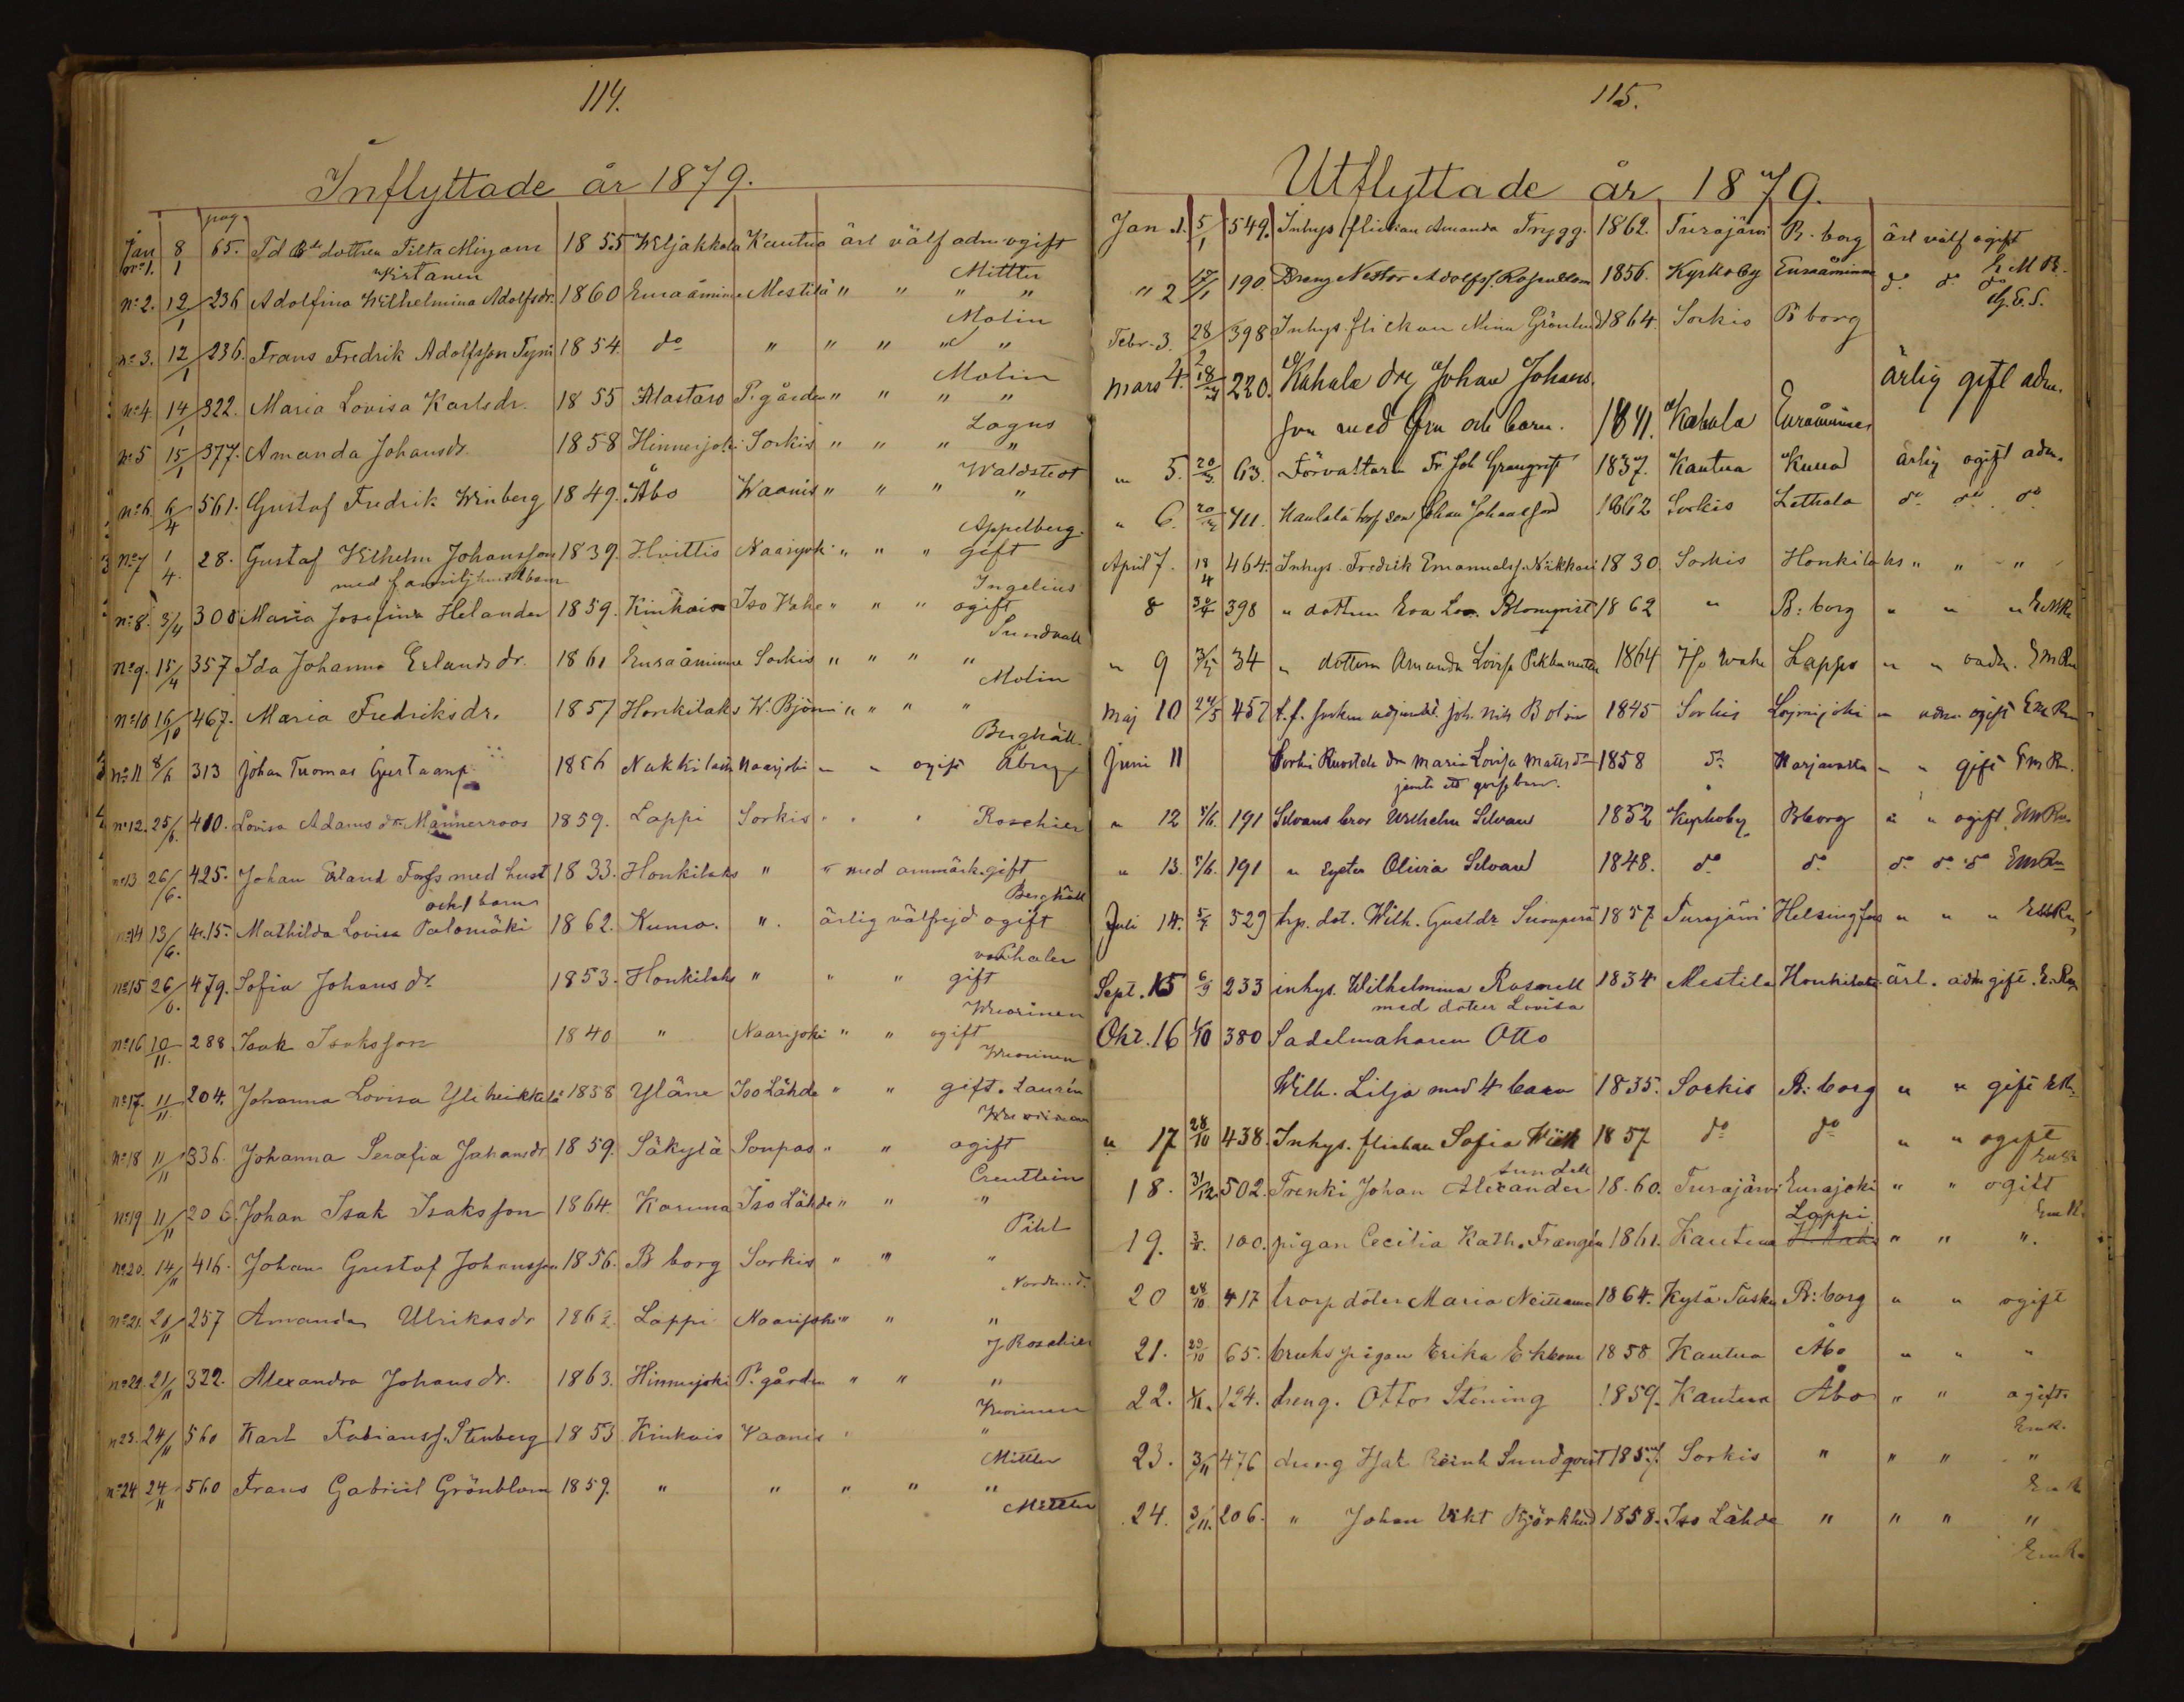 114.
Inflyttade år 1879.
pag.
Jan nº 1. 8/1 65. dottren Miryam 1855 Wiljakkala Kautua ärl välf adm ogift
Mittler
nº 2. 12/1 236 Adolfina Wilhelmina Adolfsdr. 1860 Euraåminne Mestilä " " " "
Molin
nº 3. 12/1 236. Frans Fredrik Adolfsson Tyni 1854. dº " " " " "
Molin
nº 4 14/1 322. Maria Lovisa Karlsdr. 1855 Alastaro P. gården " " " "
Lagus
nº 5 15/1 377. Amanda Johansdr. 1858 Hinnerjoki Sorkis " " " "
Waldstedt
nº 6 6/4 561. Gustaf Fredrik Winberg 1849. Åbo Waanis " " " "
Appelberg.
nº 7 1/4. 28. Gustaf Wilhelm Johansson 1839. Hvittis Naarjoki " " " gift
med familj
Ingelius
nº 8. 3/4 308 Maria Josefina Helander 1859. Kinkais Iso Vahe " " " ogift
Sundvall
nº 9. 15/4 357 Ida Johanna Erlandsdr. 1861 Euraåminne Sorkis " " " "
Molin
nº 10 16/10 467. Maria Fredriksdr. 1857 Honkilaks W. Björni " " " "
Berghäll.
nº 11 8/6 313 Johan Tuomas Gustaansp 1856 Nakkila Naarjoki " " ogift
nº 12. 25/6. 410. Lovisa Adamsdr Männerroos 1859. Lappi Sorkis " " "
Roschier
nº 13 26/6. 425. Johan Erland Forss med hust 1833. Honkilaks " " med anmärk. gift
och 1 barn
Berghäll
nº 14 13/6. 415. Mathilda Lovisa Palomäki 1862. Kumo. " ärlig välfrejd ogift
nº 15 26/6. 479. Sofia Johansdr. 1853. Honkilaks " " " gift
Wuorinen
nº 16 10/11. 288 Isak Isaksson 1840 " Naarjoki " " ogift
Wuorinen
nº 17. 11/11. 204. Johanna Lovisa Yliheikkilä 1838 Yläne Iso Lähde " " gift. Laurén
nº 18 11/11 336. Johanna Serafia Johansdr. 1859. Säkylä Sonpas " " ogift
Creutlein
nº 19 11/11 206. Johan Isak Isaksson 1864. Karuna Iso Lähde " " "
Pihl
nº 20. 14/11 416. Johan Gustaf Johansson 1856. B borg Sorkis " " "
nº 21. 20/11 257 Amanda Ulrikasdr 1862. Lappi Naarjoki " " "
J Roschier
nº 22. 21/11 322. Alexandra Johansdr. 1863. Hinnerjoki P. gården " " "
nº 23. 24/11 560 Karl Fabianss. Stenberg 1853 Kinkais Vaanis " "
Mittler
nº 24 24/11 560 Frans Gabriel Grönblom 1859. " " " " "
Mittler
115.
Utflyttade år 1879.
Jan 1. 5/1 549. Inhys flickan Amanda Trygg. 1862. Turajärvi B. borg ärl välf ogift
E M R.
" 2 17/1 190 Dreng Nestor Adolfss. Rosenblom 1856. Kyrkoby Euraåminne dº dº dº
Febr. 3. 28/2 398 Inhys. flickan Mina Grönlund 1864. Sorkis B borg
mars 4. 18/3 220. Kahala drg Johan Johans
son med hru och barn. 1841. Kahala Euraåminne ärlig gift adm.
" 5. 20/3 63. Förvaltaren Fr. Joh Granqvist 1837. Kautua Kumo ärlig ogift adm.
" 6. 20/3 411. son Johan Johansson 1862 Sorkis Letthala dº dº dº
April 7. 18/4 464. Inhys. Fredrik Emanuelss. Nikkari 1830. Sorkis Honkilaks " " "
8 30/4 398 " dottren Eva Lov. Blomqvist 1862 " B: borg " " " EMR
" 9 3/5 34 " dottren Amanda Lovisa 1864 Iso Wahe Lappo " " oadm. EMRn
Maj 10 24/5 457 t. f. Joh. Nils Bolin 1845 Sorkis Loimijoki " adm ogift EMRn
Juni 11 Sorkis Maria Lovisa Mattsdr 1858 dº Harjavalta " " gift EmRn.
jemte
" 12 5/6. 191 Silvans bror Wilhelm Silvan 1852 Kyrkoby Bborg " " ogift EMRn
" 13. 5/6. 191 " syster Olivia Silvan 1848. dº dº dº dº dº EMRn
Juli 14. 529 trp. dot. Wilh. Gustdr 1857 Turajärvi Helsingfors " " " EMRn
Sept. 15 6/9 233 inhys. Wilhelmina Rosnell 1834 Mestila Honkilaks ärl. adm gift. E. Rn
med dotter Lovisa
Okt. 16 1/10 380 Sadelmakaren Otto
Wilh. Lilja med 4 barn 1835. Sorkis B: borg " " gift
" 17 28/10 438. Inhys. flickan Sofia Wiik 1857 dº dº " " ogift
Sundell
18. 31/12 502. Trenki Johan Alexander 1860. Turajärvi Eurajoki " " ogift
Lappi
19. 100. pigan Cecilia Kath. Frangén 1861. Kautua " " "
20 28/10 417 torp doter Maria 1864. Kylä Tasku B: borg " " ogift
21. 29/10 65. bruks pigan Erika Ekbom 1858 Kautua Åbo " " "
22. 1/11. 124. dreng. Otto Stening 1859. Kautua Åbo " " ogift.
EmR.
23. 3/11 476 dreng Isak Reinh Sundqvist 1857. Sorkis " " " "
24. 3/11. 206. " Johan Vikt Björklund 1858. Iso Lähde " " " "
EmR.